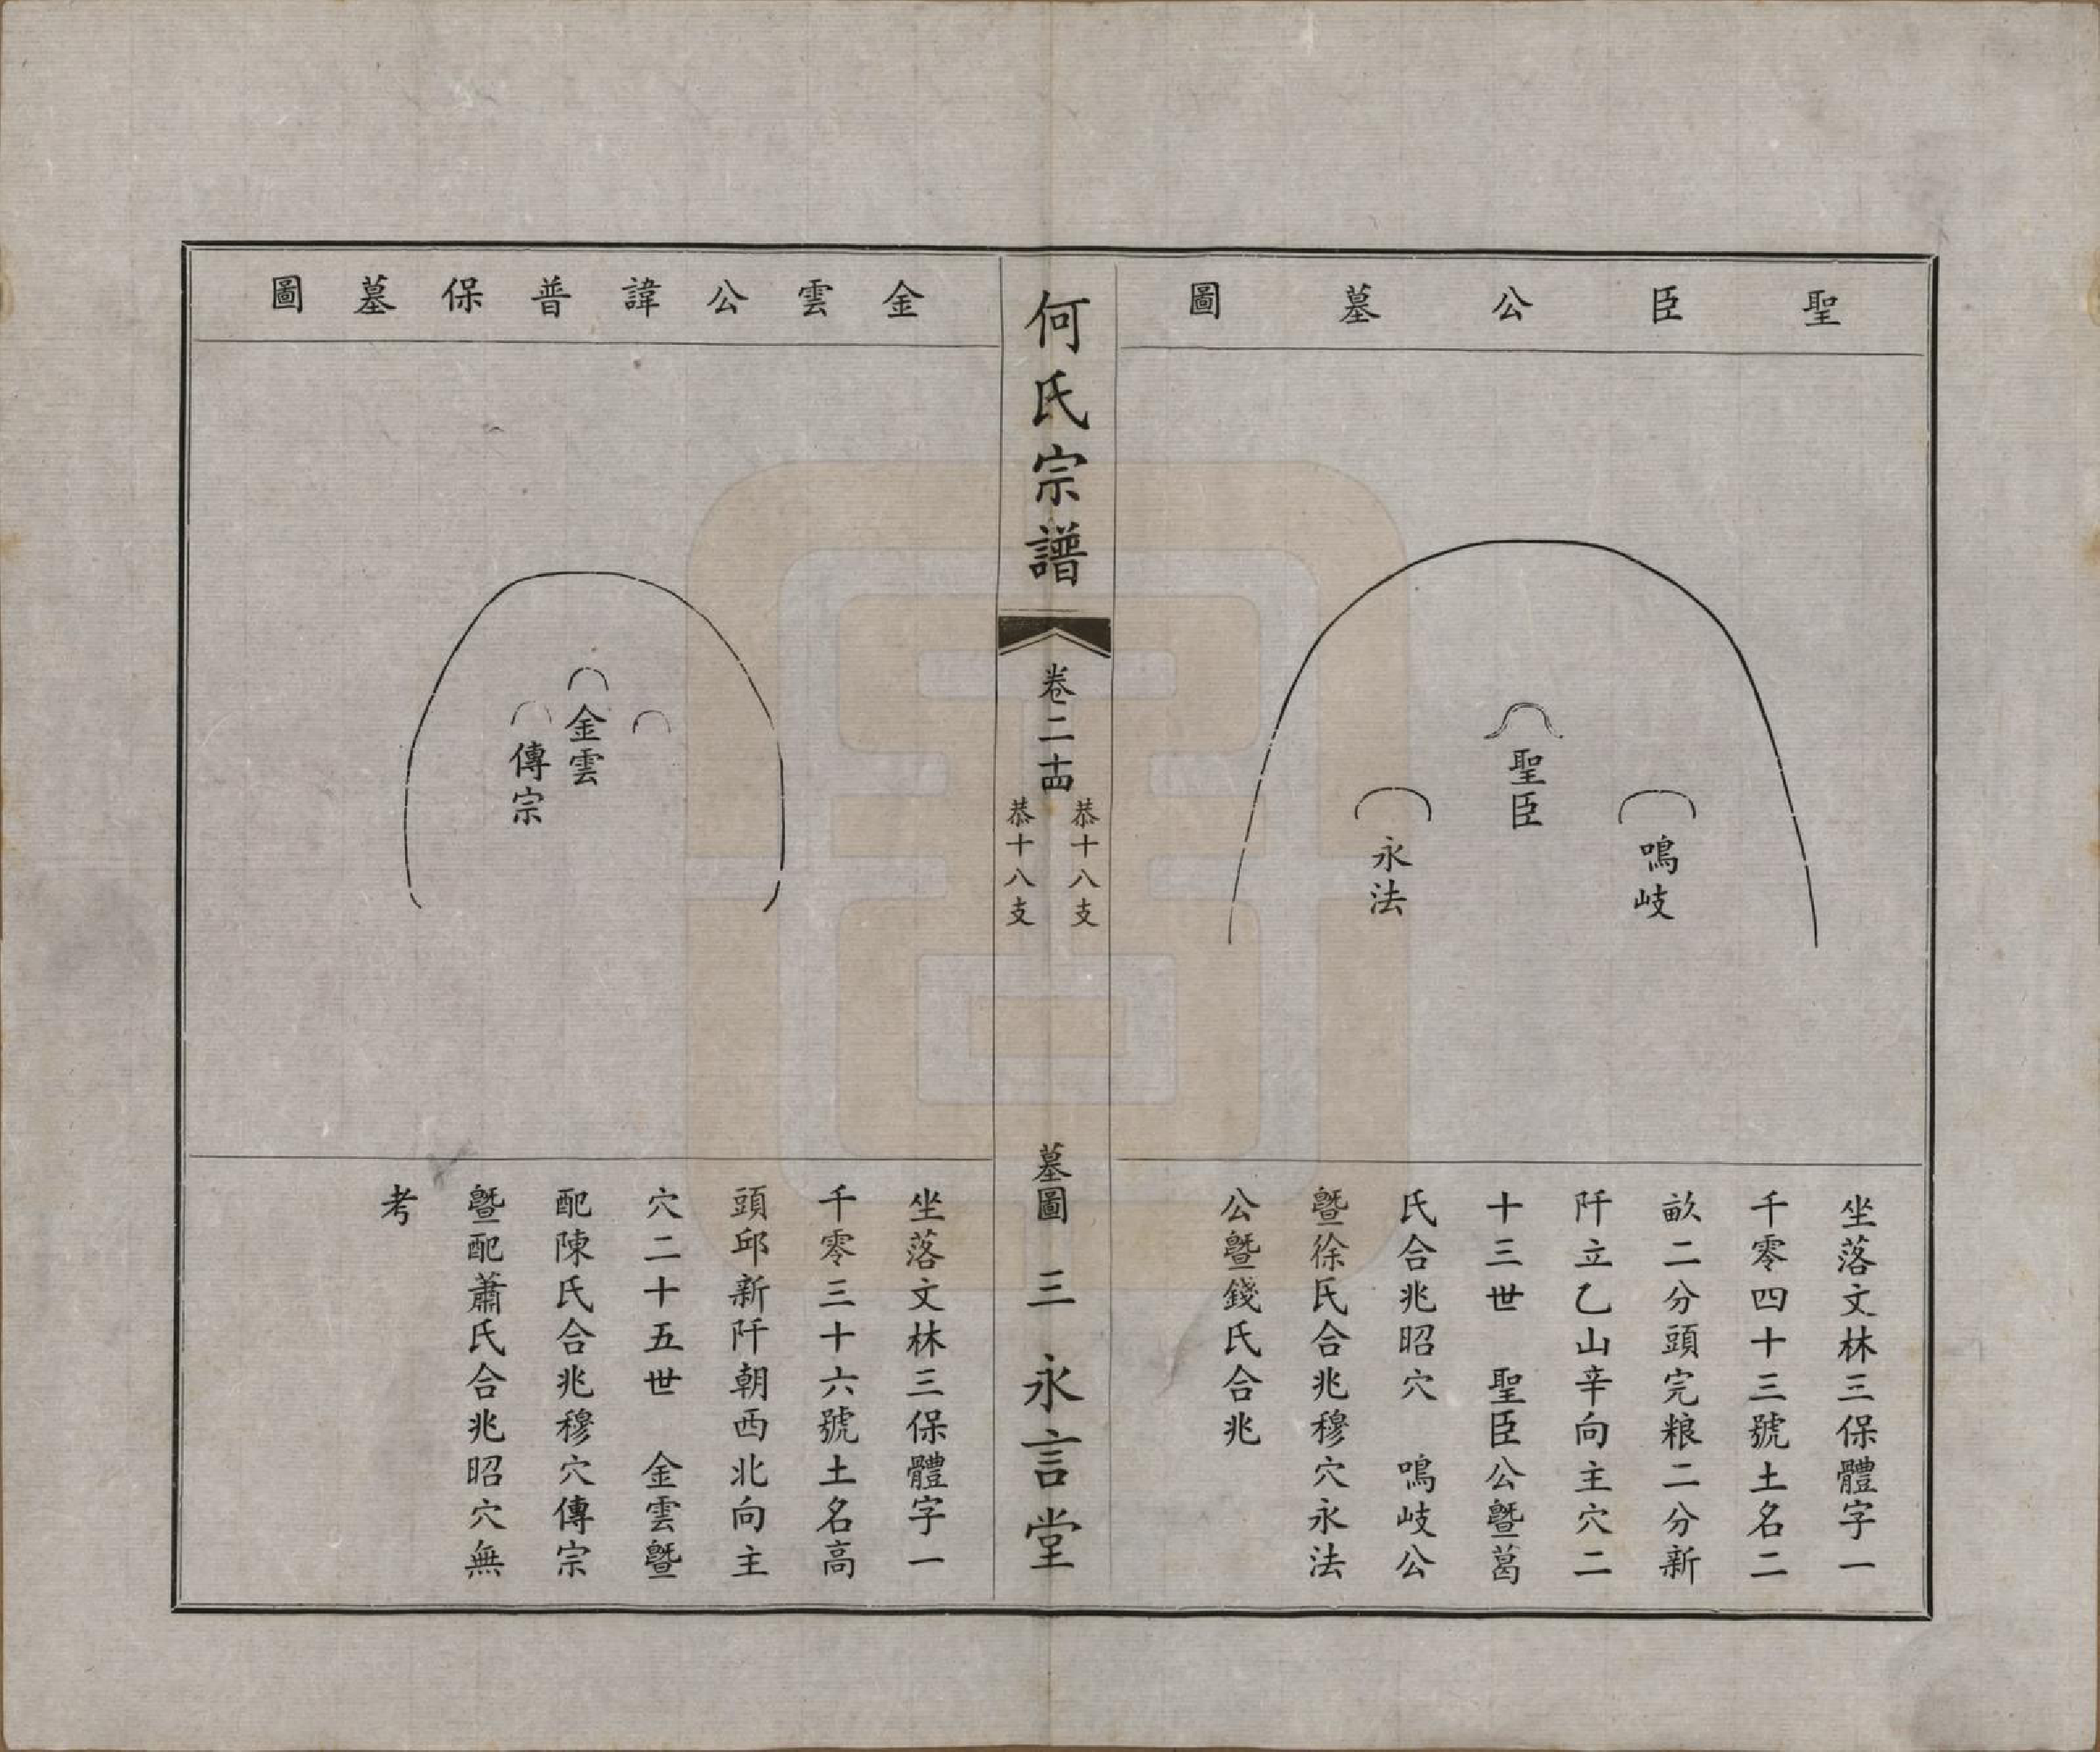 聖臣公墓圖
鳴岐
聖臣
永法
坐落文林三保體字一
千零四十三號土名二
畝二分頭完粮二分新
阡立乙山辛向主穴二
十三世　聖臣公暨葛
氏合兆昭穴　鳴岐公
暨徐氏合兆穆穴永法
公暨錢氏合兆
何氏宗譜
卷二十四
恭十八支
恭十八支
墓圖
三
永言堂
金雲公諱普保墓圖
金雲
傳宗
坐落文林三保體字一
千零三十六號土名高
頭邱新阡朝西北向主
穴二十五世　金雲暨
配陳氏合兆穆穴傳宗
暨配蕭氏合兆昭穴無
考